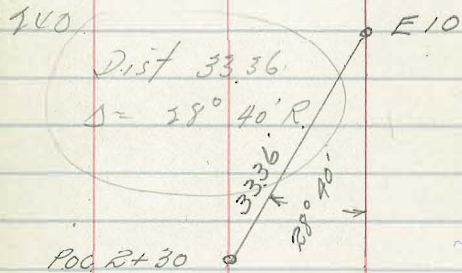 240
E 10
Dist 33.36
Δ = 28° 40' R.
33.36
28° 40'
POC 2+30